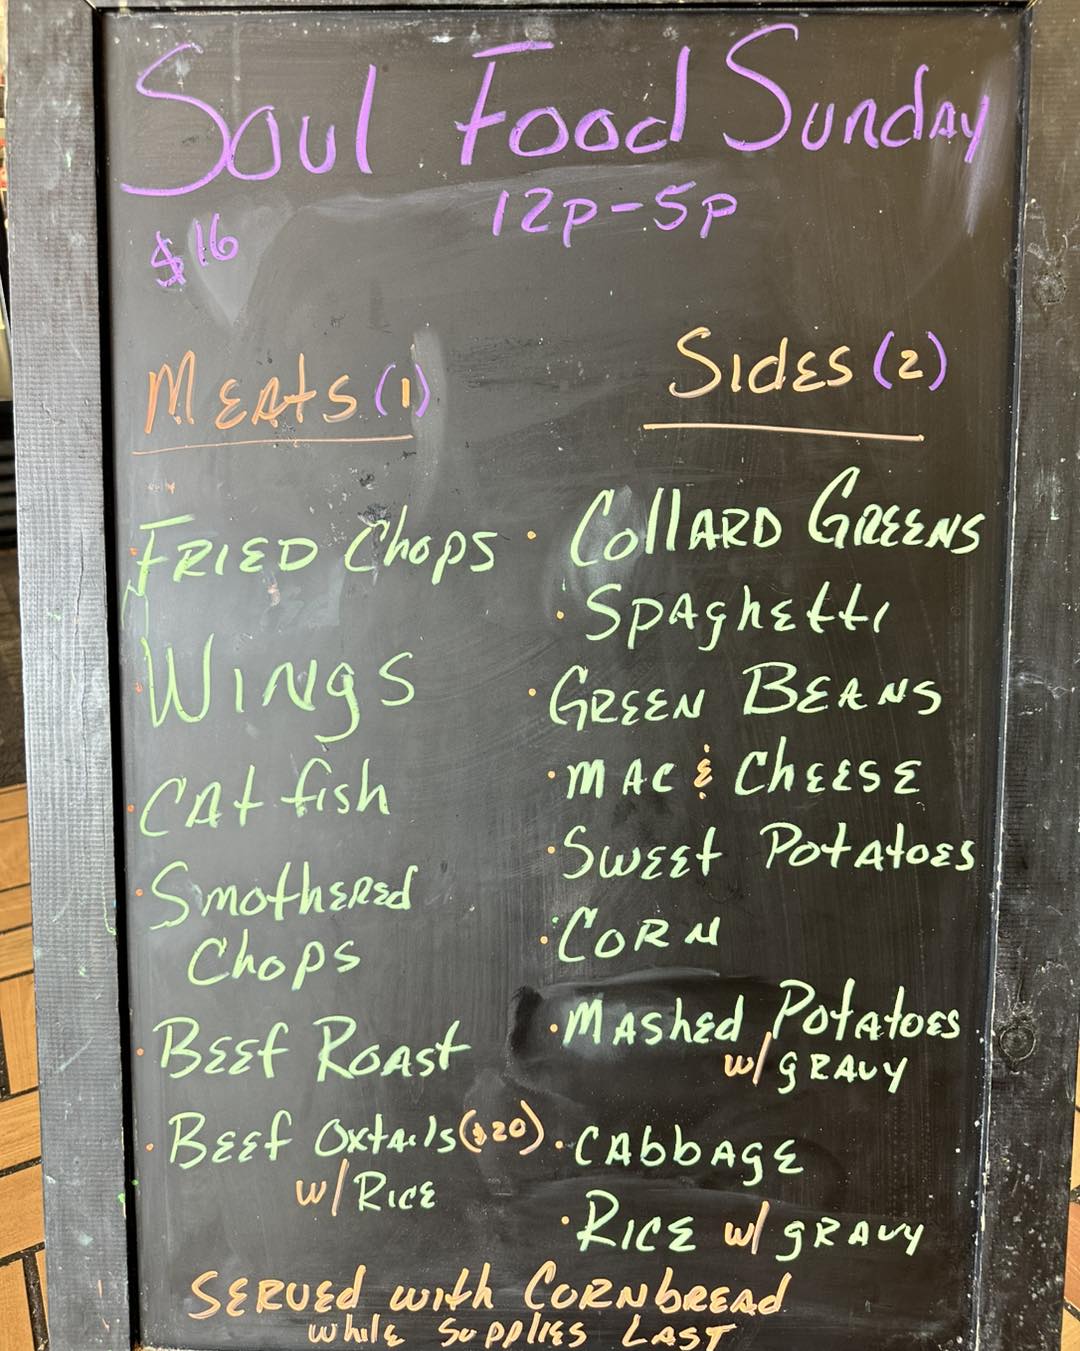 Soul Food Sunday
$16
12p-5p
Meats (1)
· Fried Chops
· Wings
· Catfish
· Smothered
Chops
· Beef Roast
· Beef Oxtails ($20)
w/ Rice
Sides (2)
· Collard Greens
· Spaghetti
· Green Beans
· Mac & Cheese
· Sweet Potatoes
· Corn
· Mashed Potatoes
w/ gravy
· Cabbage
· Rice w/ gravy
Served with Cornbread
while supplies last